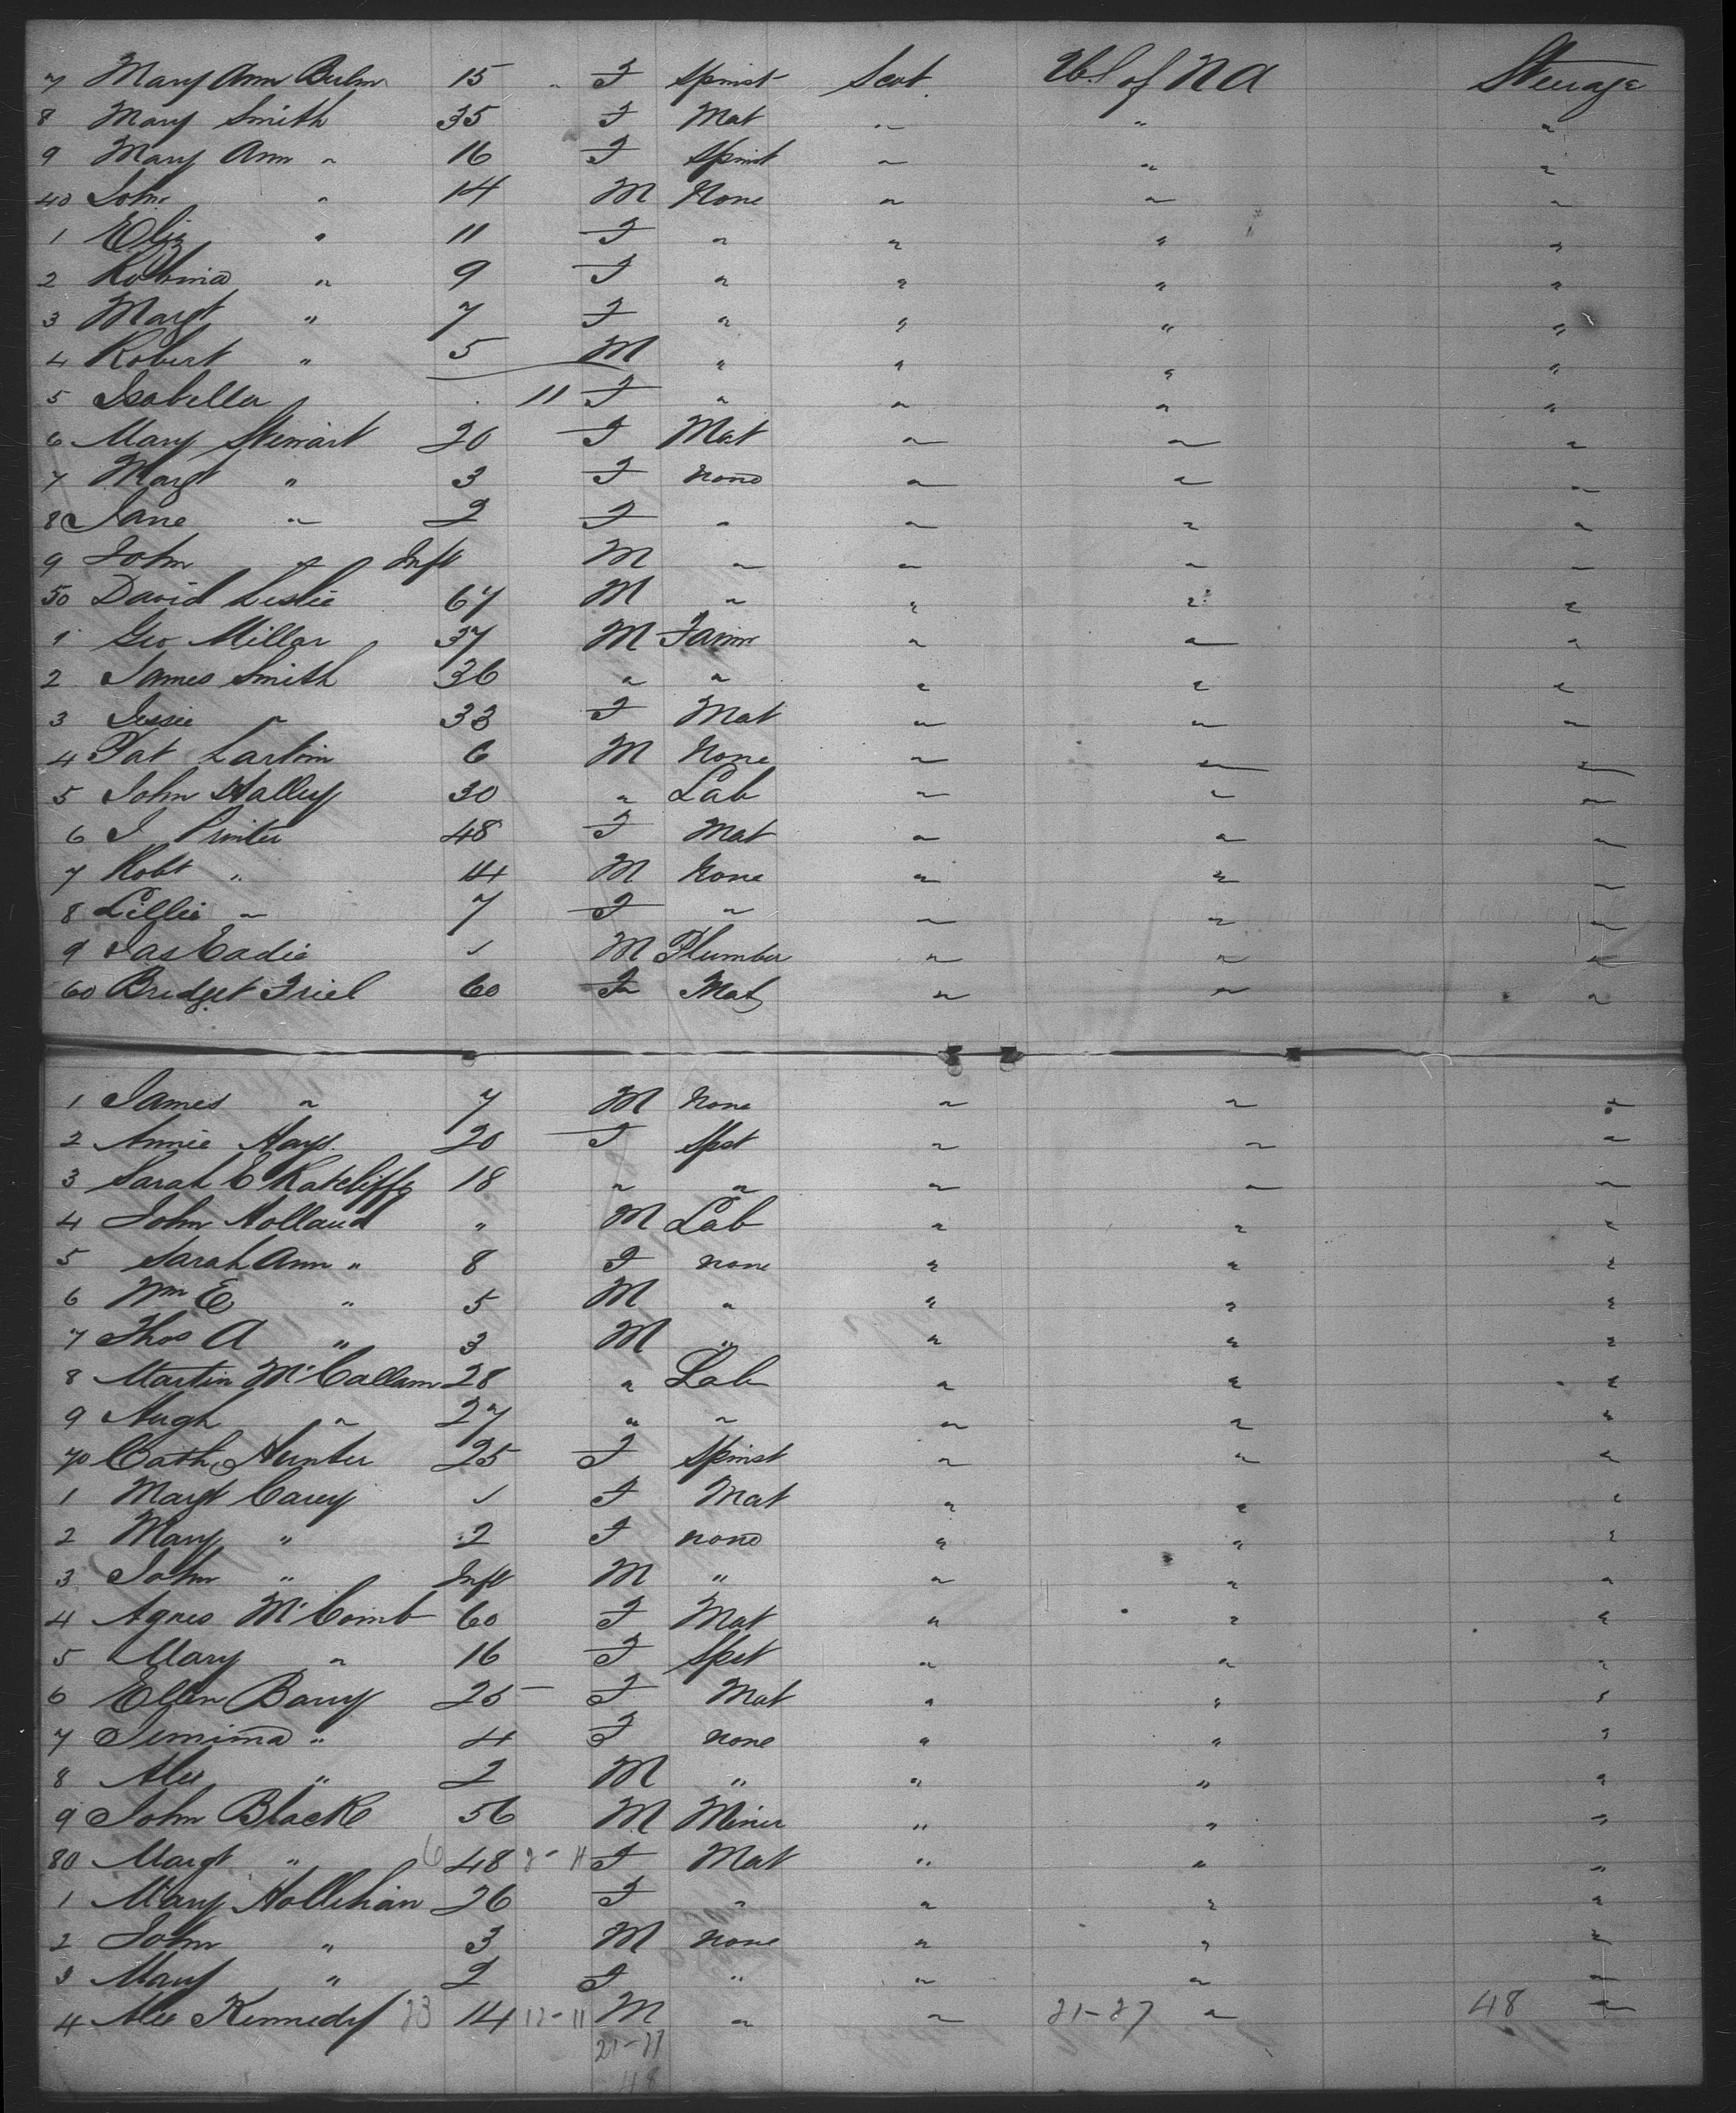 7 Mary Ann Bulm 15 " F Spinst Scot. U.S of N A Steerage
8 Mary Smith 35 F Mat " " "
9 Mary Ann " 16 F Spinst " " "
40 John " 14 M None " " "
1 Eliz " 11 F " " " "
2 Robina " 9 F " " " "
3 Margt " 7 F " " " "
4 Robert " 5 M " " " "
5 Isabella 11 F " " " "
6 Mary Stewart 20 F Mat " " "
7 Margt " 3 F none " " "
8 Jane " 2 F " " " "
9 John " Inft M " " " "
50 David Leslie 67 M " " " "
1 Geo Millar 37 M Farm " " "
2 James Smith 36 " " " " "
3 Jessie " 33 F Mat " " "
4 Pat Larkin 6 M None " " "
5 John Halley 30 " Lab " " "
6 J Printer 48 F Mat " " "
7 Robt " 14 M None " " "
8 Lillie " 7 F " " " "
9 Jas Eadie ✓ M Plumber " " "
60 Bridget Friel 60 F Mat " " "
1 James " 7 M None " " "
2 Annie Hays 20 F Spst " " "
3 Sarah E Ratcliffe 18 " " " " "
4 John Holland " M Lab " " "
5 Sarah Ann " 8 F none " " "
6 Wm E " 5 M " " " "
7 Thos A " 3 M " " " "
8 Martin McCallam 28 " Lab " " "
9 Hugh " 27 " " " " "
70 Cath Hunter 25 F Spinst " " "
1 Margt Carey ✓ F Mat " " "
2 Mary " 2 F none " " "
3 John " Inft M " " " "
4 Agnes McComb 60 F Mat " " "
5 Mary " 16 F Spst " " "
6 Ellen Barry 25 F Mat " " "
7 Jemima " 4 F none " " "
8 Alex " 2 M " " " "
9 John Black 56 M Miner " " "
80 Margt " 6 48 2-11 F Mat " " "
1 Mary Hollihan 26 F " " " "
2 John " 3 M none " " "
3 Mary " 2 F " " " "
4 Alex Kennedy 23 14 12-11 M " " 21-27 " 48 "
21-27
48